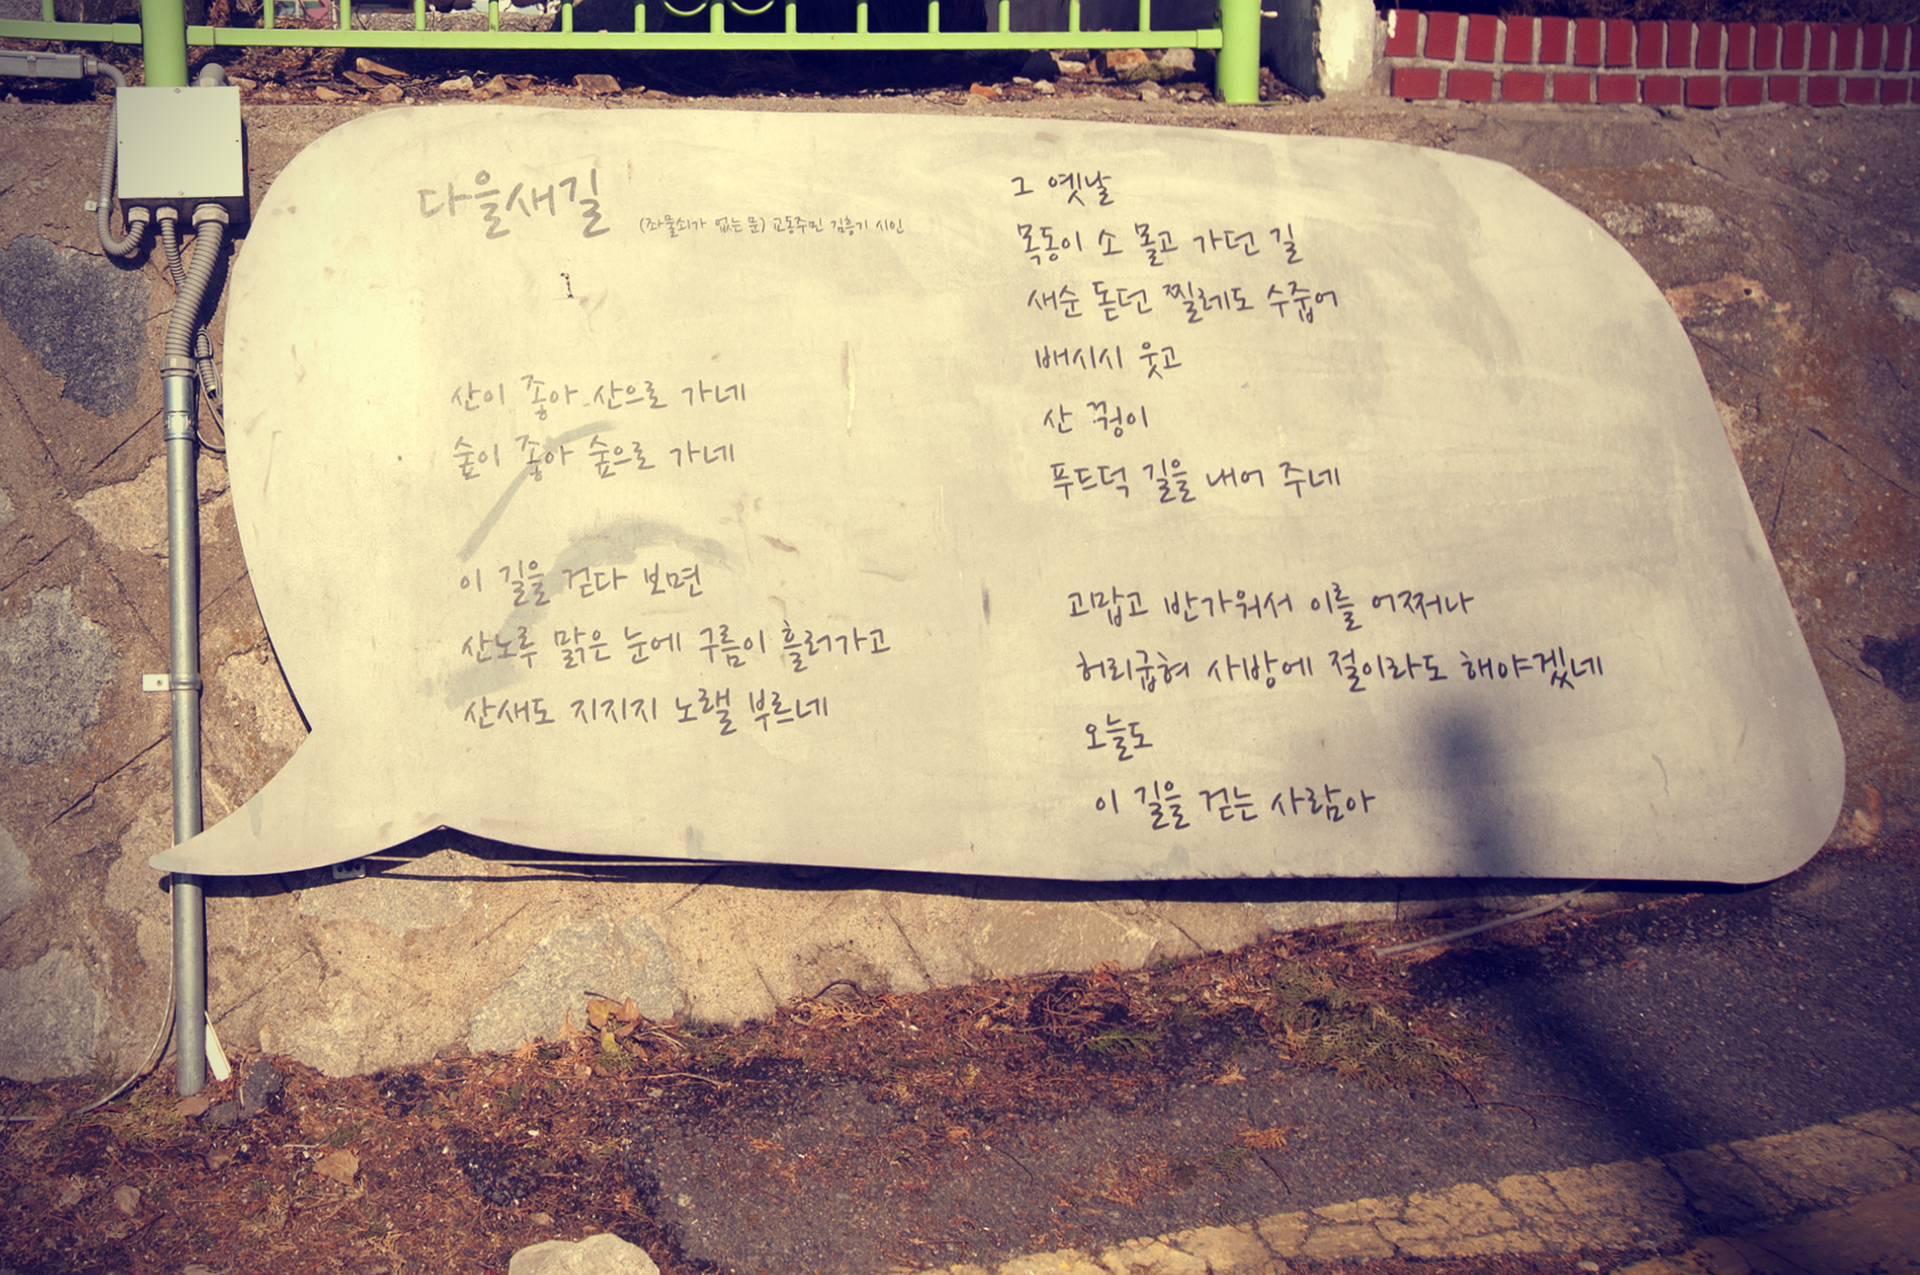 다을새길
(좌물쇠가 없는 문) 교동주민 김흥기 시인
1
산이 좋아 산으로 가네
숲이 좋아 숲으로 가네
이 길을 걷다 보면
산노루 맑은 눈에 구름이 흘러가고
산새도 지지지 노랠 부르네
그 옛날
목동이 소 몰고 가던 길
새순 돋던 찔레도 수줍어
배시시 웃고
산 꿩이
푸드덕 길을 내어 주네
고맙고 반가워서 이를 어쩌나
허리굽혀 사방에 절이라도 해야겠네
오늘도
이 길을 걷는 사람아